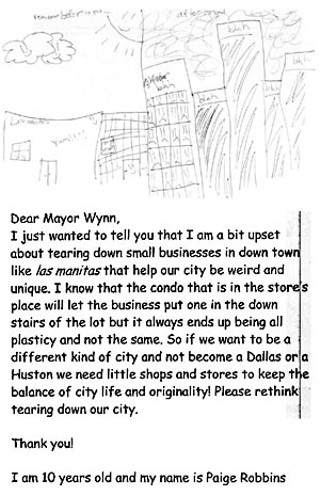 blah
blah
blah
blah
blah
Yum!!!
Dear Mayor Wynn,
I just wanted to tell you that I am a bit upset
about tearing down small businesses in down town
like las manitas that help our city be weird and
unique. I know that the condo that is in the store's
place will let the business put one in the down
stairs of the lot but it always ends up being all
plasticy and not the same. So if we want to be a
different kind of city and not become a Dallas or a
Huston we need little shops and stores to keep the
balance of city life and originality! Please rethink
tearing down our city.
Thank you!
I am 10 years old and my name is Paige Robbins